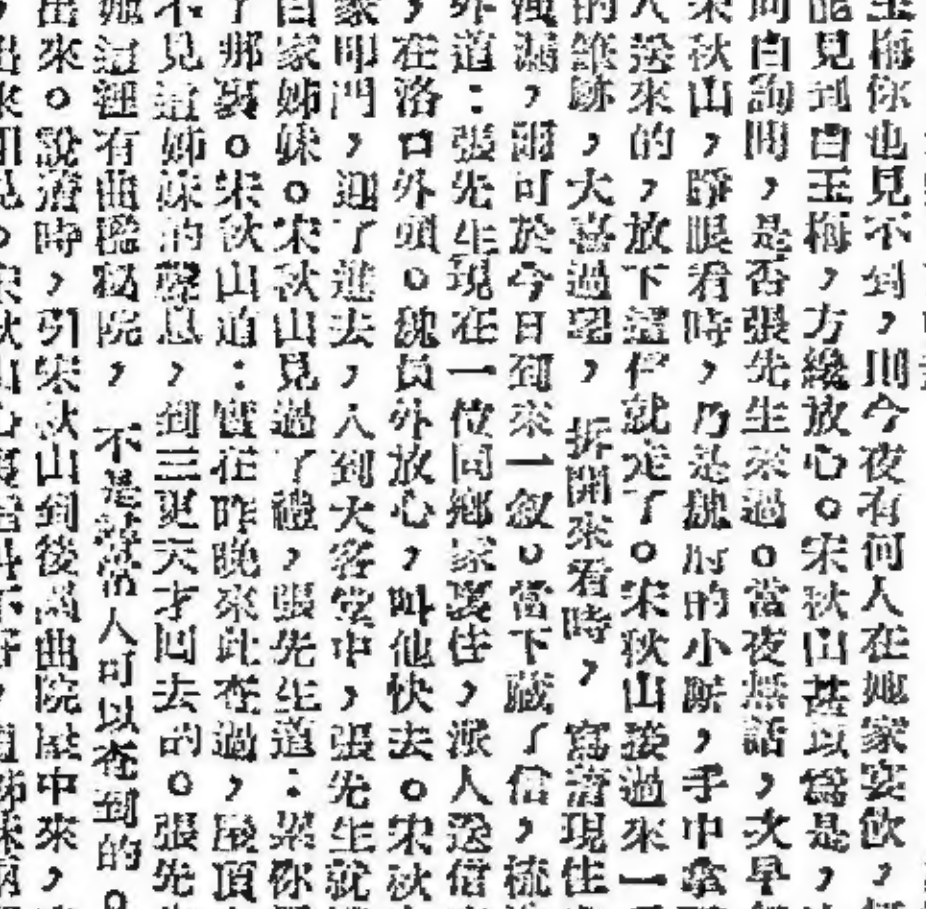 玉梅你也見不到，則今夜有何人在她家宴飲，
能見到白玉梅，方纔放心。宋秋山甚以爲是，
向白詢問，是否張先生來過。當夜無話，次早
宋秋山，睜眼看時，乃是魏府的小廝，手中拿
人送來的，放下這個就走了。宋秋山接過來一
的筆跡，大喜過望，拆開來看時，寫着現住
洩漏，爾可於今日到來一敘。當下藏了信，梳
外道：張先生現在一位同鄉家裏住，派人送信
，在洛口外頭。魏員外放心，叫他快去。宋秋
家叩門，迎了進去，入到大客堂中，張先生就
自家姊妹。宋秋山見過了禮，張先生道：累你
了那裏。宋秋山道：實在昨晚來此查過，屋頂
不見這姊妹的聲息，到三更天才回去的。張先
這裡有曲檻秘院，不是尋常人可以查到的。
出來。說着時，引宋秋山到後面曲院屋中來，